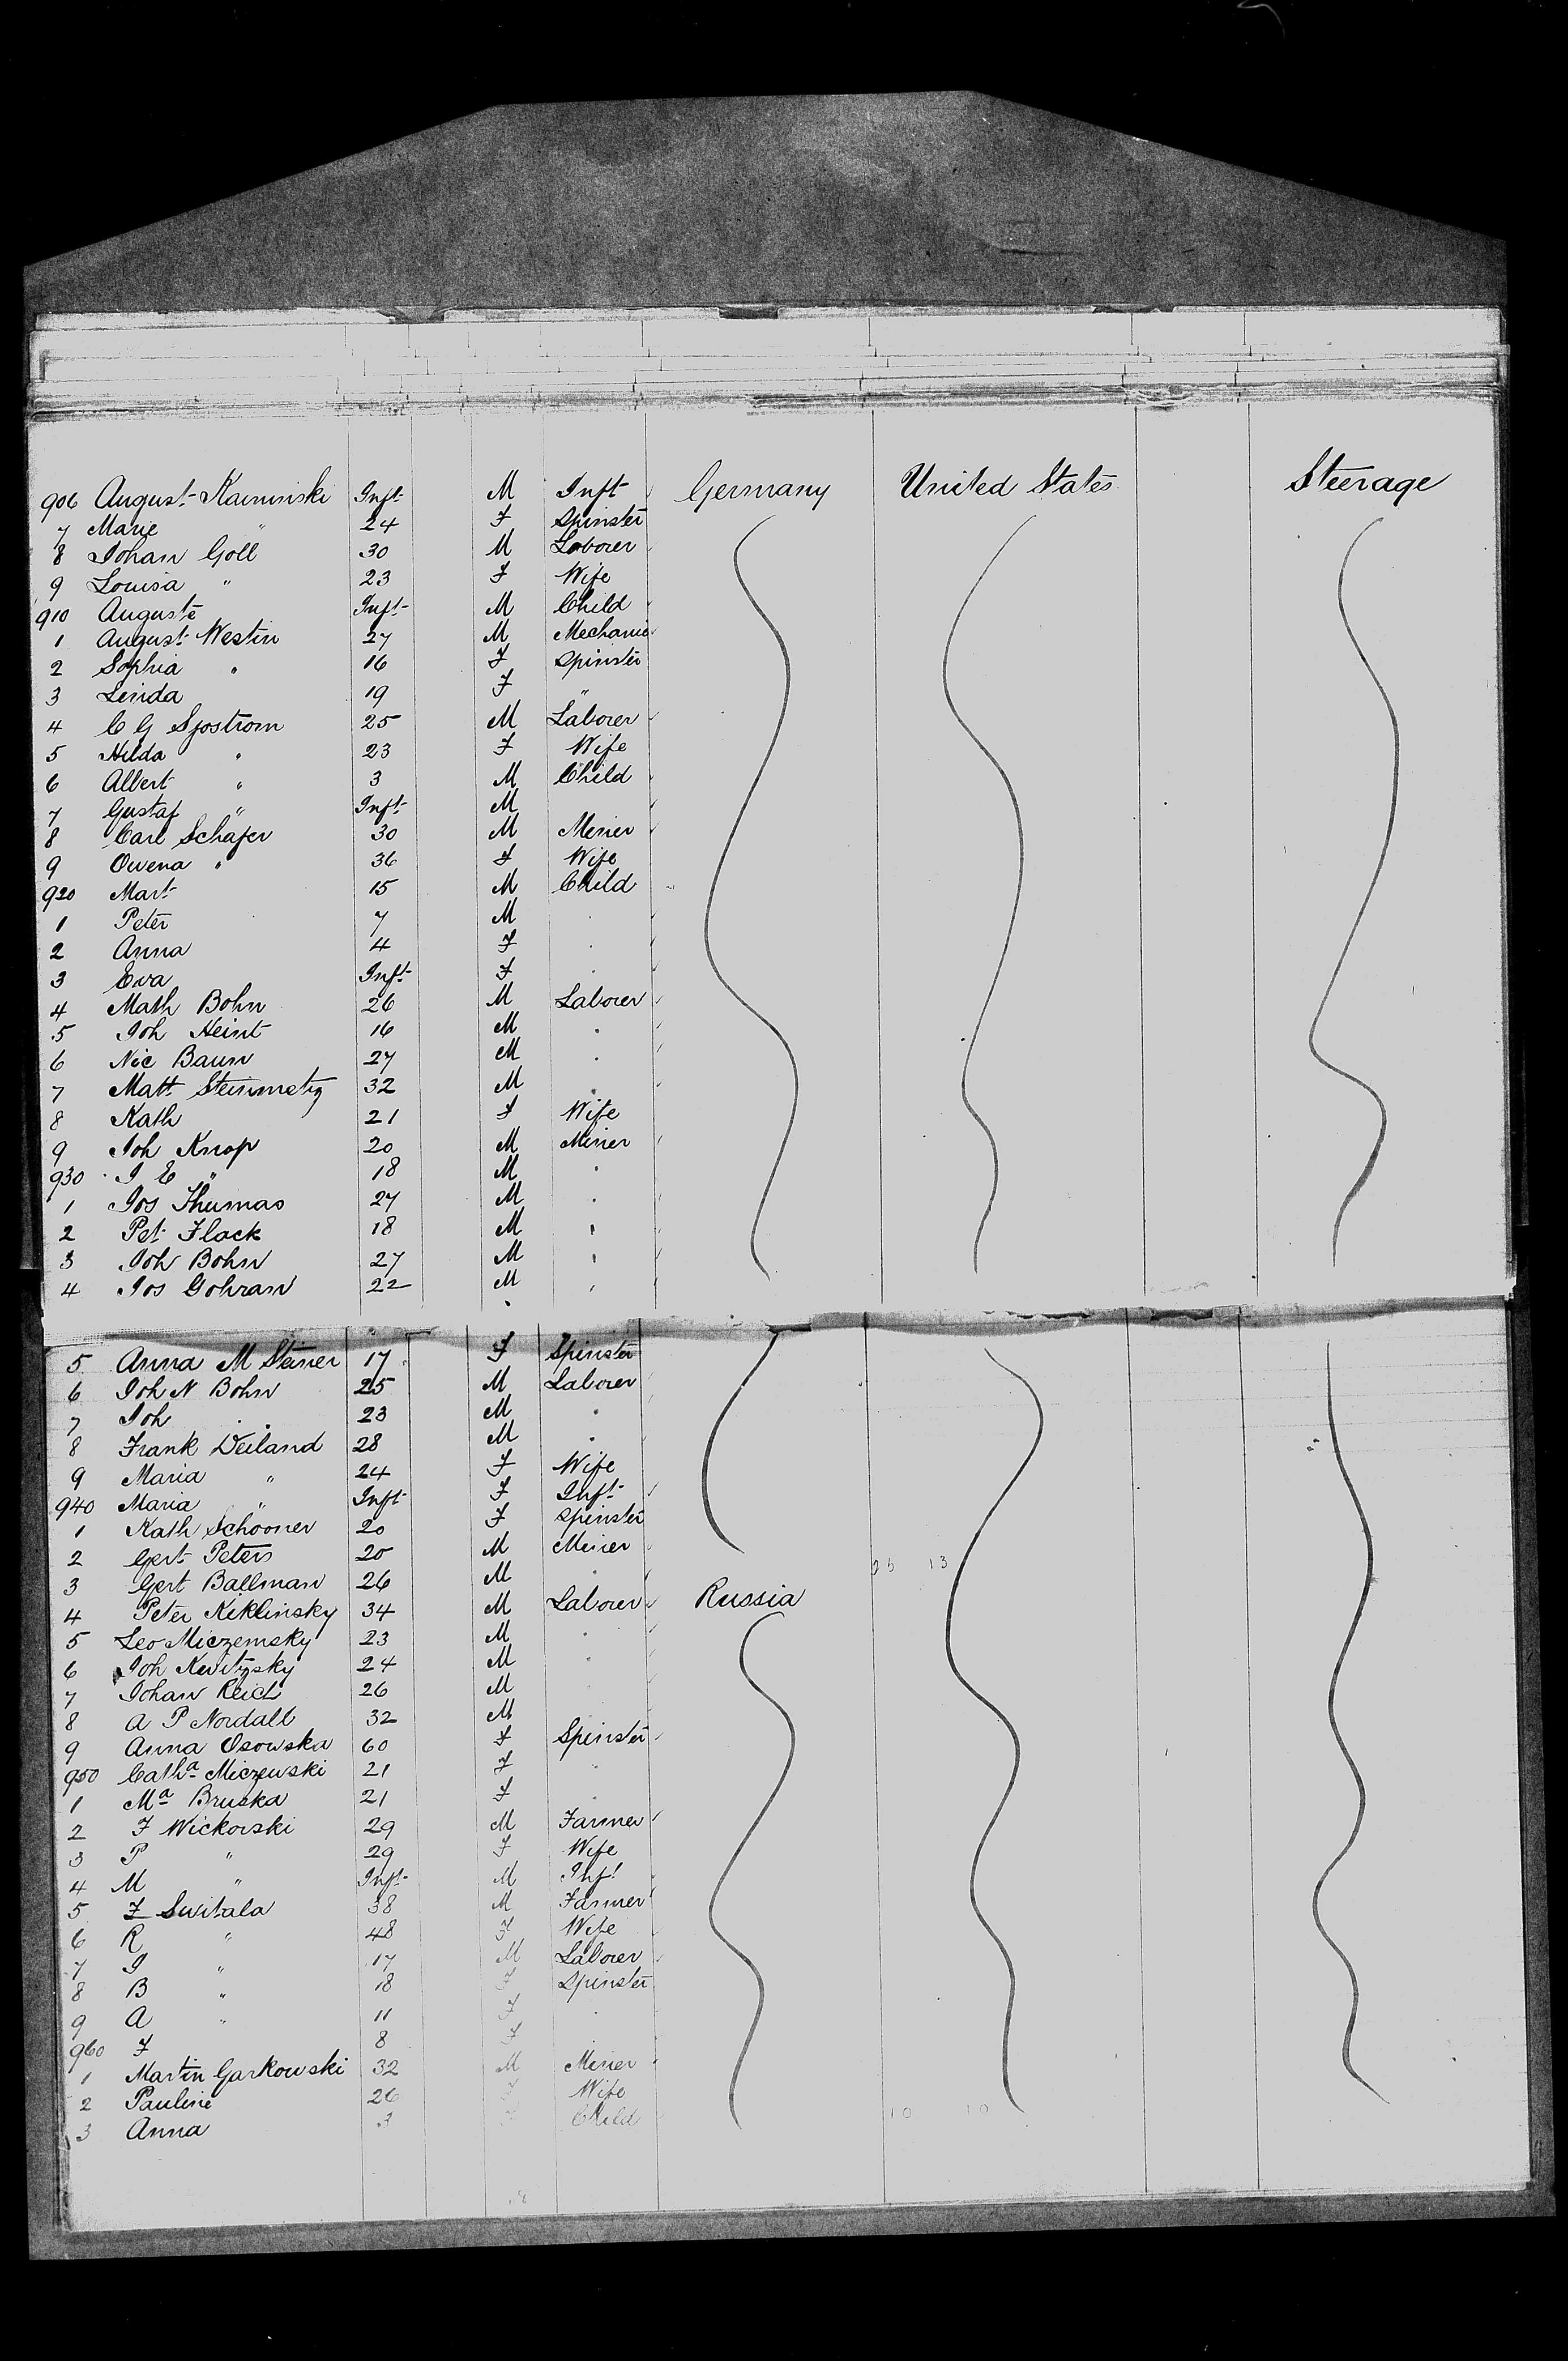 906 August Kaminski Inft M Inft Germany United States Steerage
7 Marie " 24 F Spinster
8 Johan Goll 30 M Laborer
9 Louisa " 23 F Wife
910 Auguste Inft M Child
1 August Westin 27 M Mechanic
2 Sophia " 16 F Spinster
3 Linda 19 F "
4 C G Sjostrom 25 M Laborer
5 Hilda " 23 F Wife
6 Albert " 3 M Child
7 Gustaf " Inft M
8 Carl Schafer 30 M Miner
9 Owena " 36 F Wife
920 Mart 15 M Child
1 Peter 7 M "
2 Anna 4 F "
3 Eva Inft F "
4 Math Bohn 26 M Laborer
5 Joh Heint 16 M "
6 Nic Baun 27 M "
7 Matt Steinmetz 32 M "
8 Kath 21 F Wife
9 Joh Knop 20 M Miner
930 J E " 18 M "
1 Jos Thumas 27 M "
2 Pet Flack 18 M "
3 Joh Bohn 27 M "
4 Jos Gohran 22 M "
5 Anna M Steiner 17 F Spinster
6 Joh N Bohn 25 M Laborer
7 Joh " 23 M "
8 Frank Weiland 28 M "
9 Maria " 24 F Wife
940 Maria " Inft F Inft
1 Kath Schooner 20 F Spinster
2 Gert Peters 20 M Miner
3 Gert Ballman 26 M "
4 Peter Keklinsky 34 M Laborer Russia
5 Leo Miczemsky 23 M "
6 Joh Kevitzsky 24 M "
7 Johan Reich 26 M "
8 A P Nordall 32 M
9 Anna Osowska 60 F Spinster
950 Cath a Miczewski 21 F "
1 Ma Bruska 21 F "
2 F Wickorski 29 M Farmer
3 P " 29 F Wife
4 M " Inft M Inft
5 F Switala 38 M Farmer
6 R " 48 F Wife
7 J " 17 M Laborer
8 B " 18 F Spinster
9 A " 11 F "
960 F 8 F "
1 Martin Garkowski 32 M Miner
2 Pauline 26 F Wife
3 Anna 3 F Child